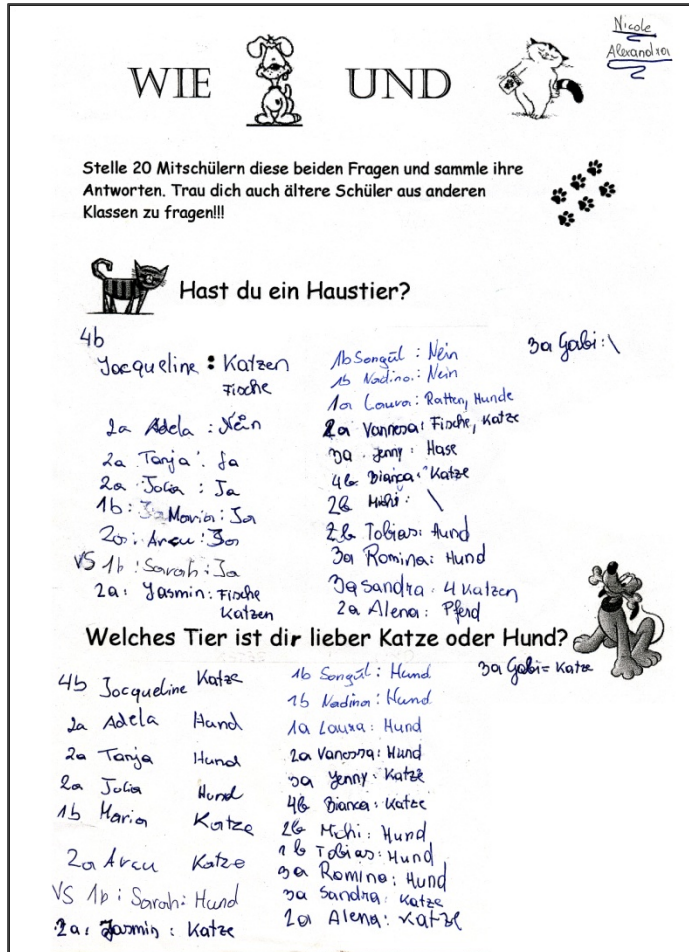 Nicole
Alexandra
WIE UND
Stelle 20 Mitschülern diese beiden Fragen und sammle ihre
Antworten. Trau dich auch ältere Schüler aus anderen
Klassen zu fragen!!!
Hast du ein Haustier?
4b
Jacqueline : Katzen
Fische
2a Adela : Nein
2a Tanja : Ja
2a Julia : Ja
1b : Maria : Ja
2a : Arcu : Ja
VS 1b : Sarah : Ja
2a : Yasmin : Fische
Katzen
1b Songül : Nein
1b Nadina : Nein
1a Laura : Ratten, Hunde
2a Vanessa : Fische, Katze
3a Jenny : Hase
4b Bianca : Katze
2b Michi : \
2b Tobias : Hund
3a Romina : Hund
3a Sandra : 4 Katzen
2a Alena : Pferd
3a Gabi : \
Welches Tier ist dir lieber Katze oder Hund?
4b Jacqueline Katze
2a Adela Hund
2a Tanja Hund
2a Julia Hund
1b Maria Katze
2a Arcu Katze
VS 1b : Sarah : Hund
2a : Yasmin : Katze
1b Songül : Hund
1b Nadina : Hund
1a Laura : Hund
2a Vanessa : Hund
3a Jenny : Katze
4b Bianca : Katze
2b Michi : Hund
2b Tobias : Hund
3a Romina : Hund
3a Sandra : Katze
2a Alena : Katze
3a Gabi = Katze